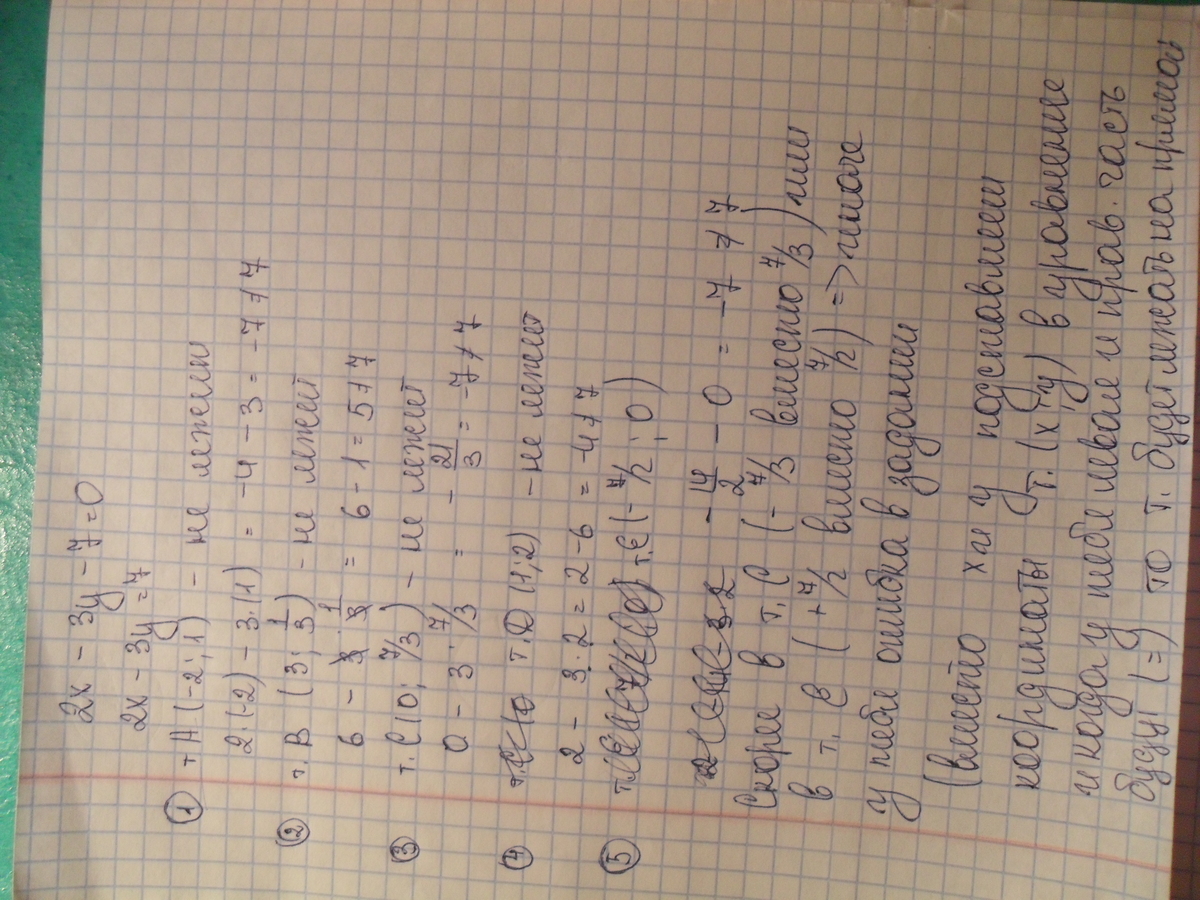 2x - 3y - 7 = 0
2x - 3y = 7
① т A (-2; 1) - не лежит
2·(-2) - 3·(1) = -4 - 3 = -7 ≠ 7
② т. B (3; 1/3) - не лежит
6 - 3 · 1/3 = 6 - 1 = 5 ≠ 7
③ т. C (0; 7/3) - не лежит
0 - 3 · 7/3 = - 21/3 = -7 ≠ 7
④ т. D (1; 2) - не лежит
2 - 3·2 = 2 - 6 = -4 ≠ 7
⑤ т. E (- 7/2; 0)
- 14/2 - 0 = -7 ≠ 7
Скорее в т. C (- 7/3 вместо 7/3) или
в т. E (+ 7/2 вместо 7/2) => иначе
у тебя ошибка в задании
(вместо x и y подставляем
координаты т. (x; y) в уравнение
и когда у тебя левая и прав. часть
будут (=) то т. будет лежать на прямой